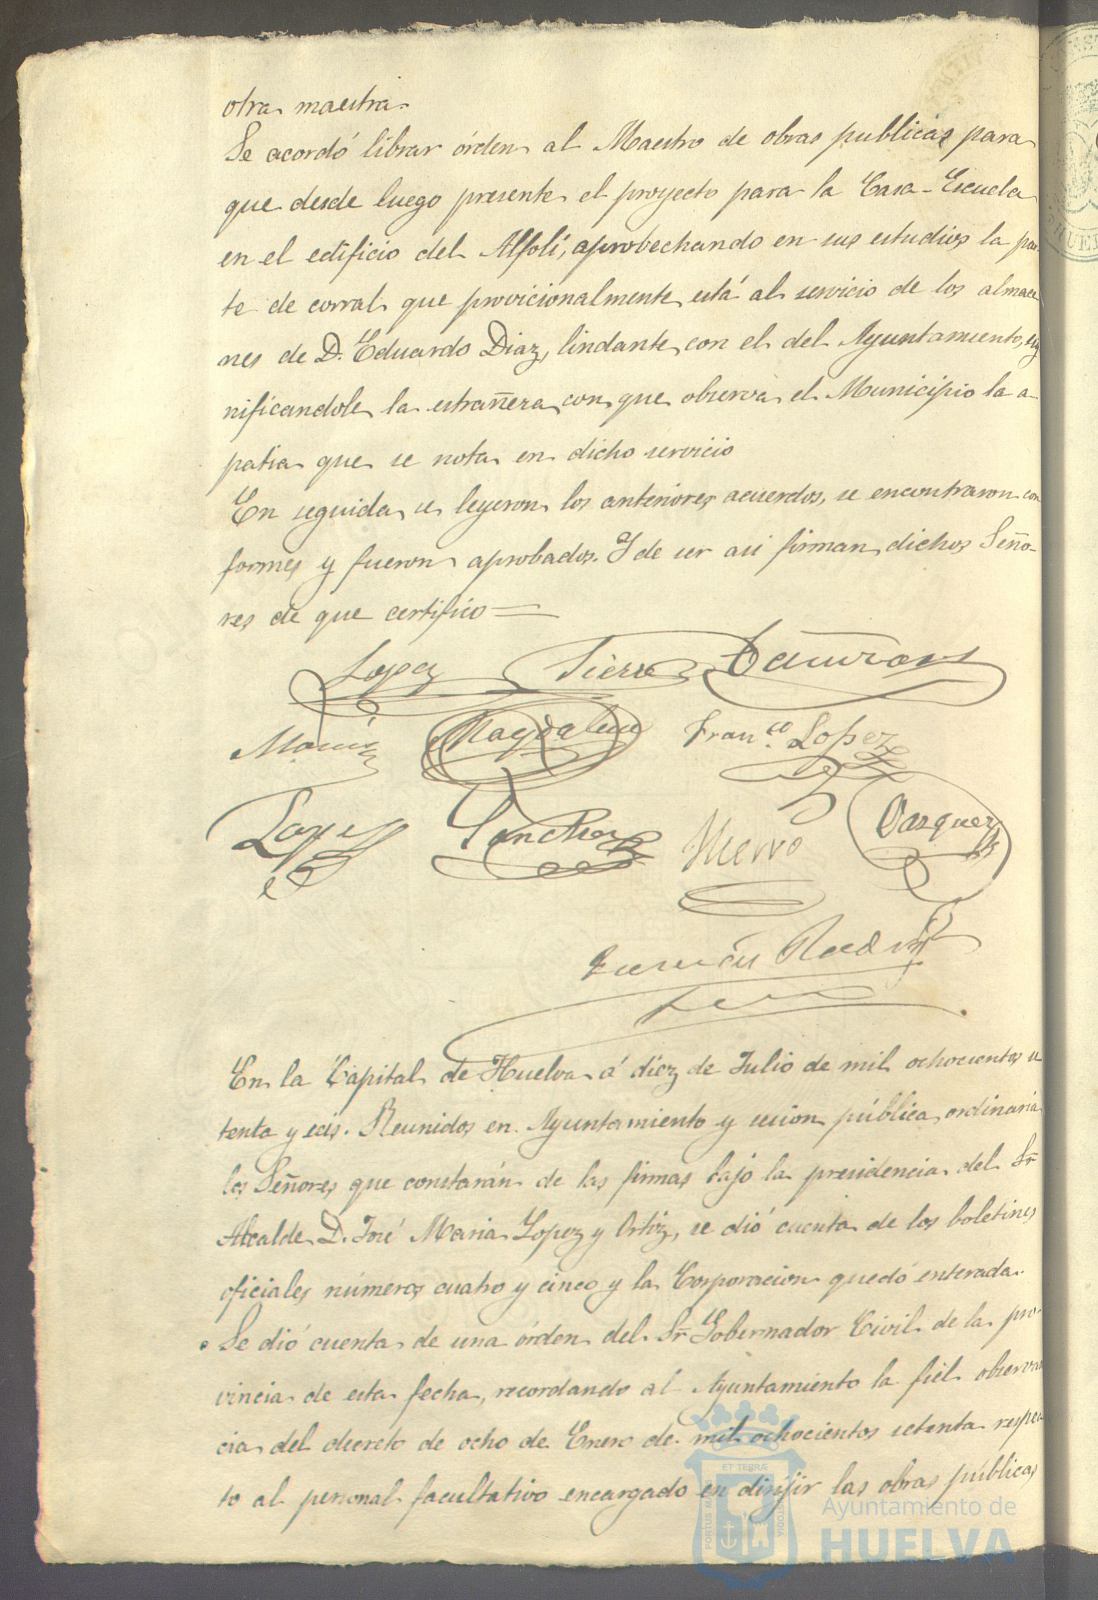 otra maestra.
Se acordó librar órden al Maestro de obras publicas para
que desde luego presente el proyecto para la Casa-Escuela
en el edificio del Alfolí, aprobechando en sus estudios la par-
te de corral que provicionalmente está al servicio de los almace
nes de D. Eduardo Diaz, lindante con el del Ayuntamiento, sig
nificandole la estrañeza con que observa el Municipio la a-
patia que se nota en dicho servicio
En seguida se leyeron los anteriores acuerdos, se encontraron con
formes y fueron aprobados. Y de ser asi firman dichos Seño-
res de que certifico=
Lopez Sierra
Magdalena Fran.co Lopez
Lopez Sanchez Hierro Vazquez
En la Capital de Huelva á diez de Julio de mil ochocientos se
tenta y seis. Reunidos en Ayuntamiento y secion pública ordinaria
los Señores que constarán de las firmas bajo la presidencia del Sr
Alcalde D. José Maria Lopez y Ortiz, se dió cuenta de los boletines
oficiales números cuatro y cinco y la Corporacion quedó enterada.
Se dió cuenta de una órden del Sr Gobernador Civil de la pro-
vincia de esta fecha, recordando al Ayuntamiento la fiel observan
cia del decreto de ocho de Enero de mil ochocientos setenta respec
to al personal facultativo encargado en dirijir las obras públicas
ET TERRÆ
PORTUS MARIS
CUSTODIA
Ayuntamiento de
HUELVA